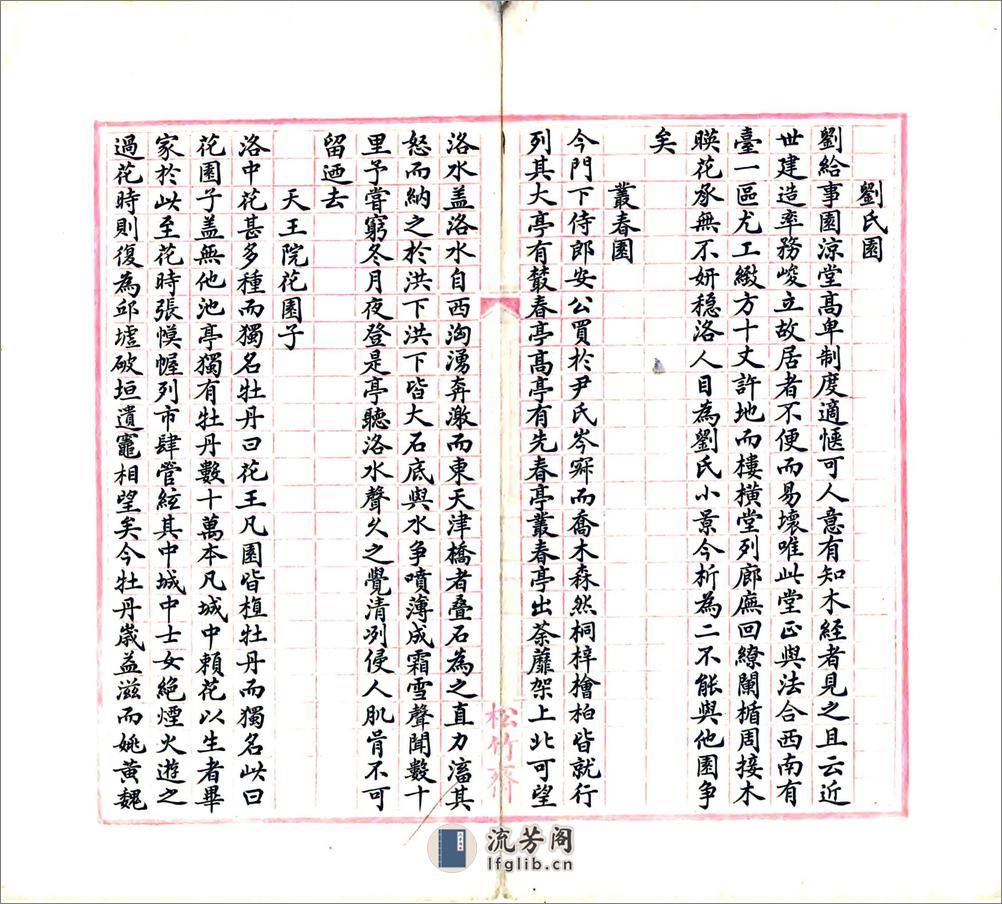 劉氏園
劉給事園涼堂髙卑制度適愜可人意有知木經者見之且云近
世建造率務峻立故居者不便而易壞唯此堂正與法合西南有
臺一區尤工緻方十丈許地而樓橫堂列廊廡回繚闌楯周接木
暎花承無不妍穏洛人目為劉氏小景今析為二不能與他園争
矣
叢春園
今門下侍郎安公買於尹氏岑寂而喬木森然桐梓檜柏皆就行
列其大亭有叢春亭髙亭有先春亭叢春亭出荼蘼架上北可望
洛水盖洛水自西洶湧奔激而東天津橋者叠石為之直力滀其
怒而納之於洪下洪下皆大石底與水争噴薄成霜雪聲聞數十
里予嘗窮冬月夜登是亭聽洛水聲久之覺清冽侵人肌骨不可
留迺去
天王院花園子
洛中花甚多種而獨名牡丹曰花王凡園皆植牡丹而獨名此曰
花園子盖無他池亭獨有牡丹數十萬本凡城中頼花以生者畢
家於此至花時張幙幄列市肆管絃其中城中士女絶煙火遊之
過花時則復為邱墟破垣遺竈相望矣今牡丹嵗益滋而姚黃魏
松竹齋
流芳阁
lfglib.cn